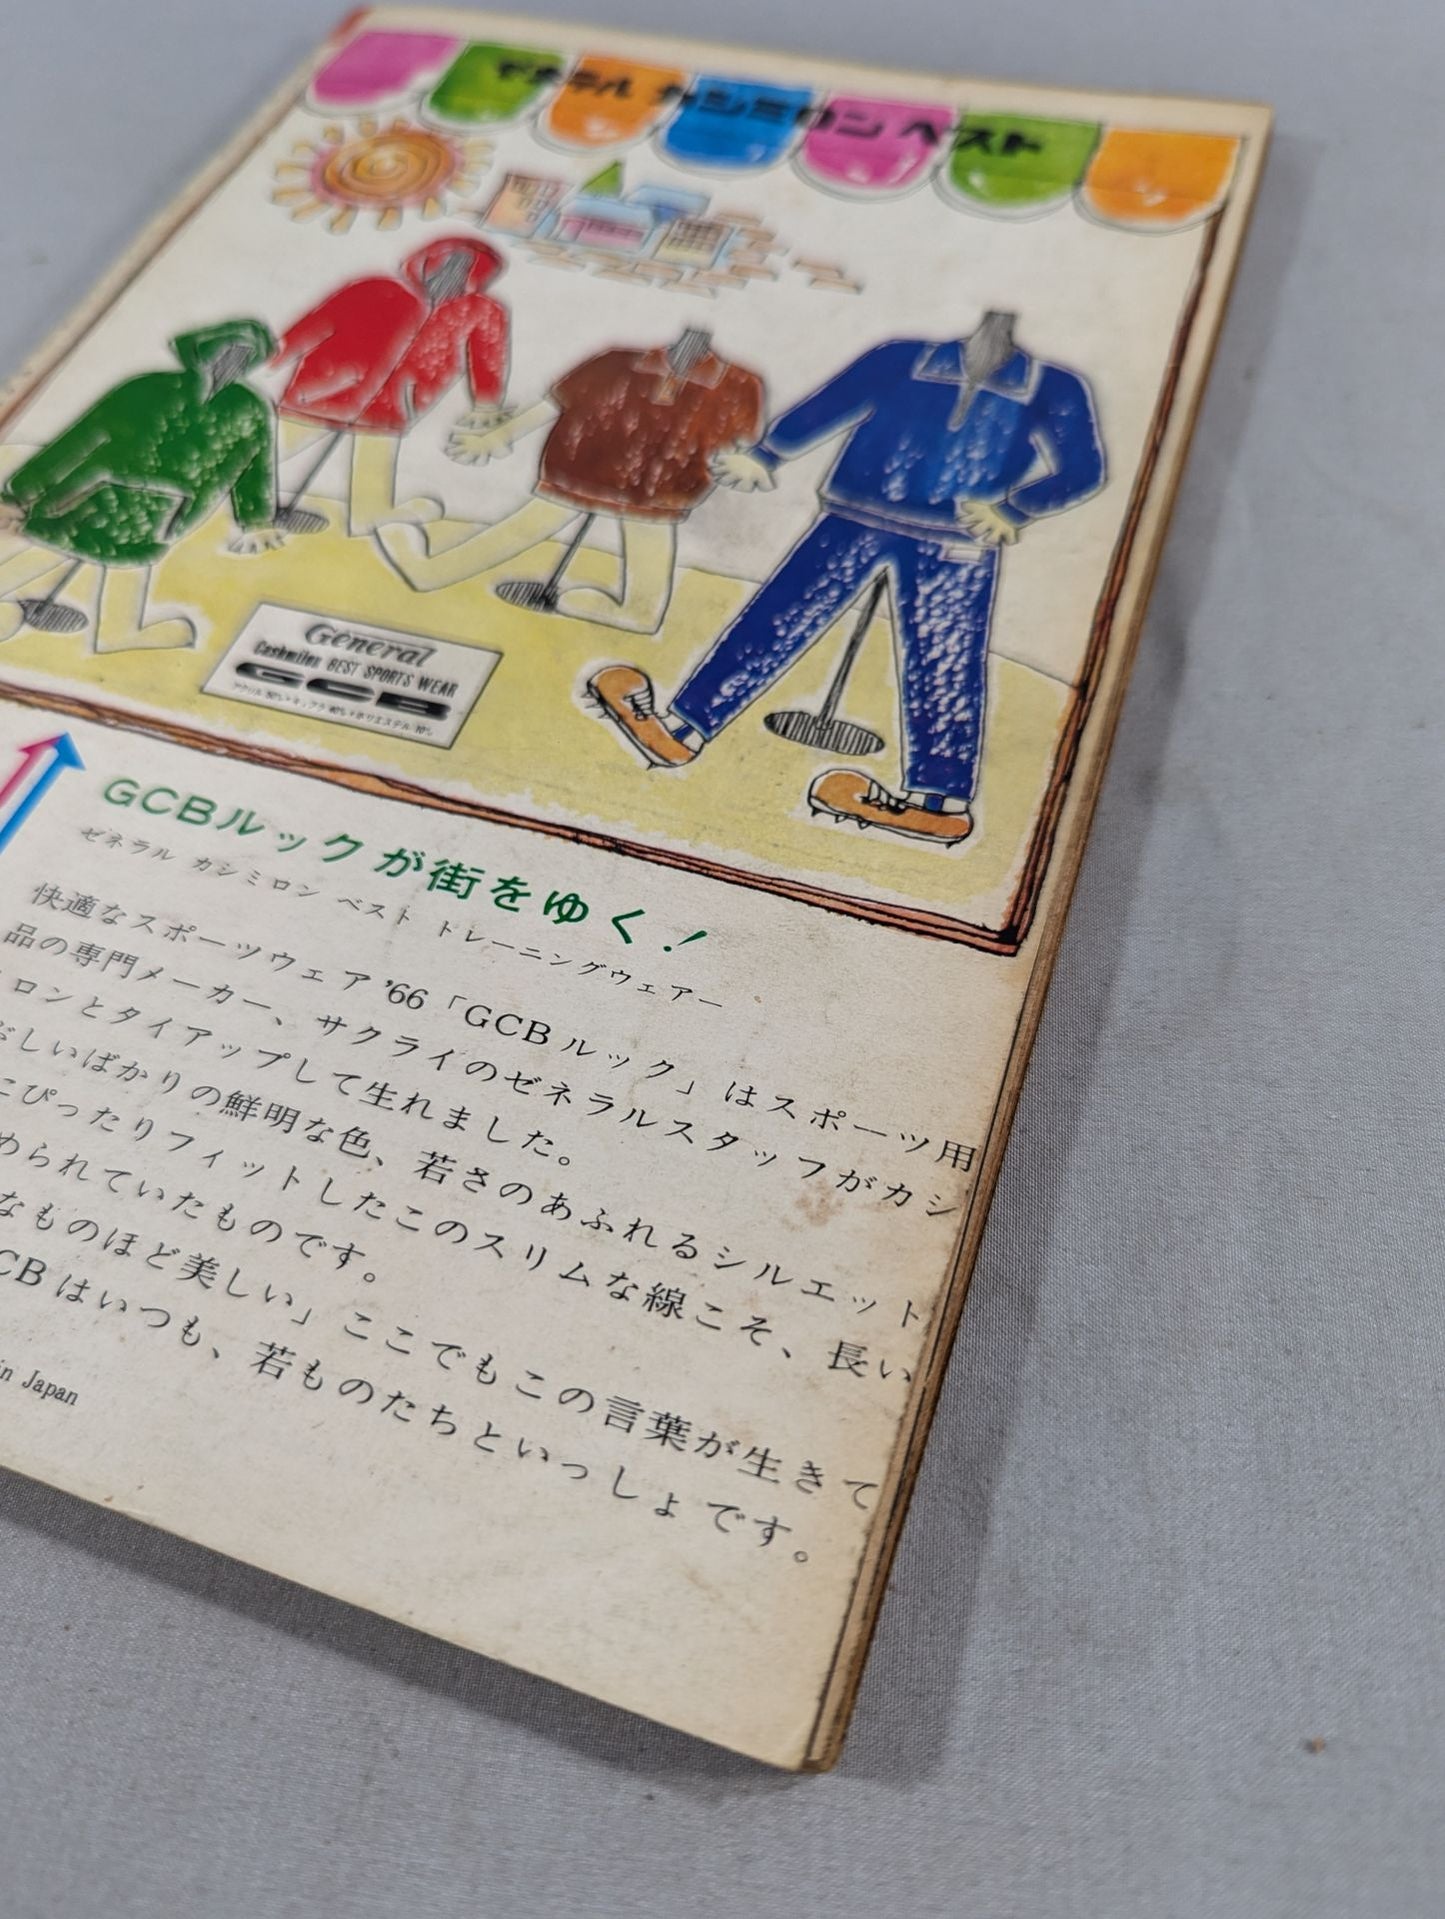 ゼネラル カシミロン ベスト
General
Cashmilon BEST SPORTS WEAR
GCB
アクリル50%・キュプラ40%・ポリエステル10%
GCBルックが街をゆく！
ゼネラル カシミロン ベスト トレーニングウェアー
快適なスポーツウェア'66「GCBルック」はスポーツ用
品の専門メーカー、サクライのゼネラルスタッフがカシ
ロンとタイアップして生れました。
しいばかりの鮮明な色、若さのあふれるシルエット
にぴったりフィットしたこのスリムな線こそ、長い
められていたものです。
なものほど美しい」ここでもこの言葉が生きて
CBはいつも、若ものたちといっしょです。
in Japan